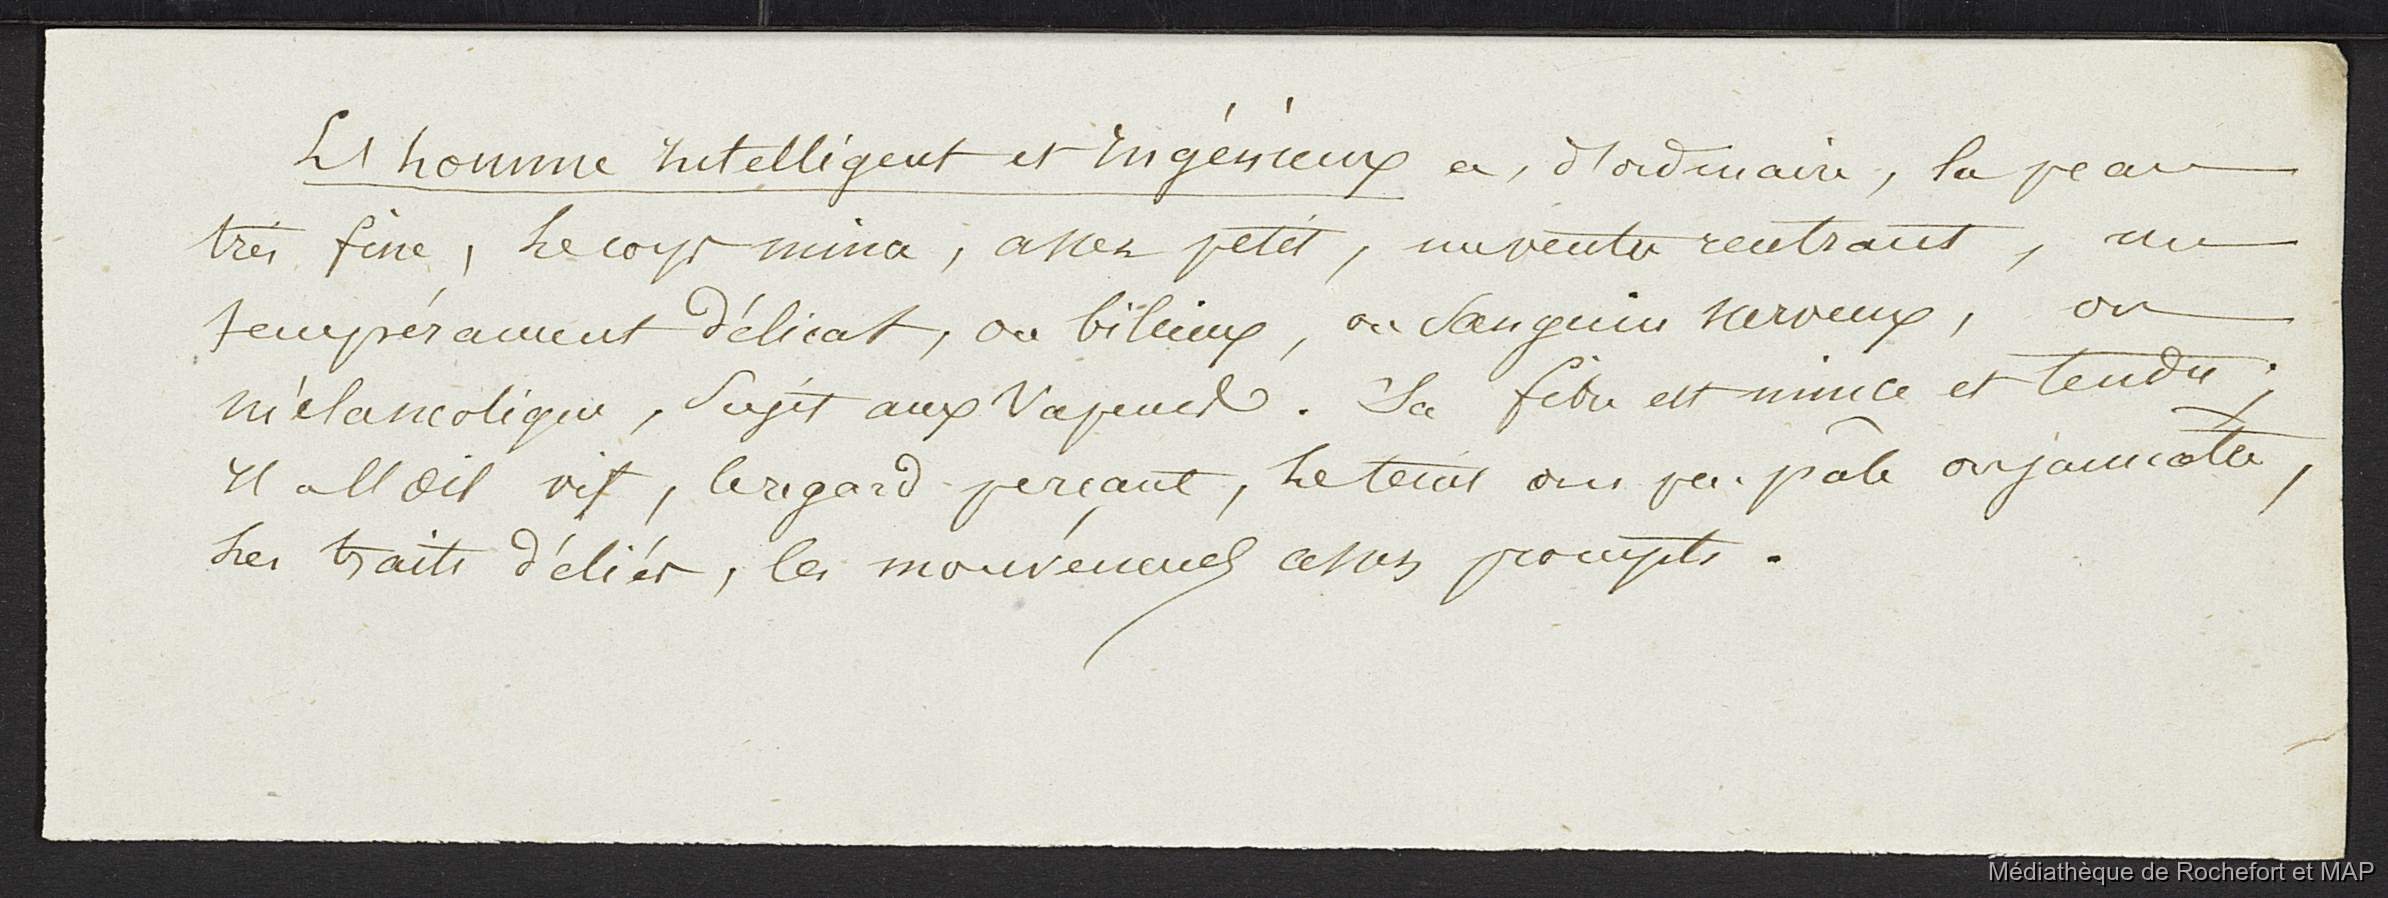 L'homme Intelligent et Ingénieux a, d'ordinaire, la peau
très fine, le corps mince, assez petit, un ventre rentrant, un
tempérament délicat, ou bilieux, ou sanguin nerveux, ou
mélancolique, sujet aux vapeurs. Sa fibre est mince et tendue;
Il a l'œil vif, le regard perçant, le teint un peu pâle ou jaunâtre,
les traits déliés, les mouvémens assez prompts.
Médiathèque de Rochefort et MAP